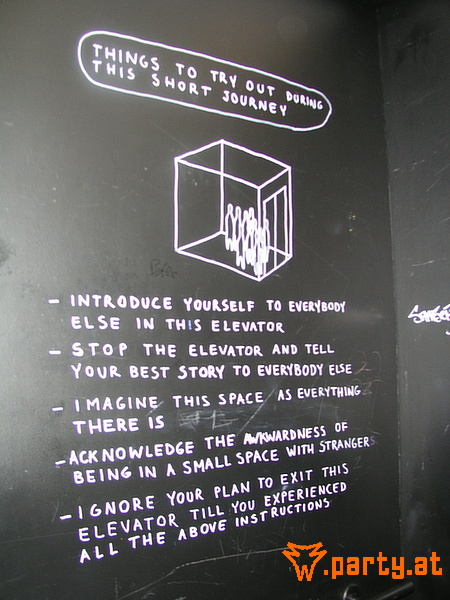 THINGS TO TRY OUT DURING
THIS SHORT JOURNEY
- INTRODUCE YOURSELF TO EVERYBODY
ELSE IN THIS ELEVATOR
- STOP THE ELEVATOR AND TELL
YOUR BEST STORY TO EVERYBODY ELSE
- IMAGINE THIS SPACE AS EVERYTHING
THERE IS
- ACKNOWLEDGE THE AWKWARDNESS OF
BEING IN A SMALL SPACE WITH STRANGERS
- IGNORE YOUR PLAN TO EXIT THIS
ELEVATOR TILL YOU EXPERIENCED
ALL THE ABOVE INSTRUCTIONS
.party.at